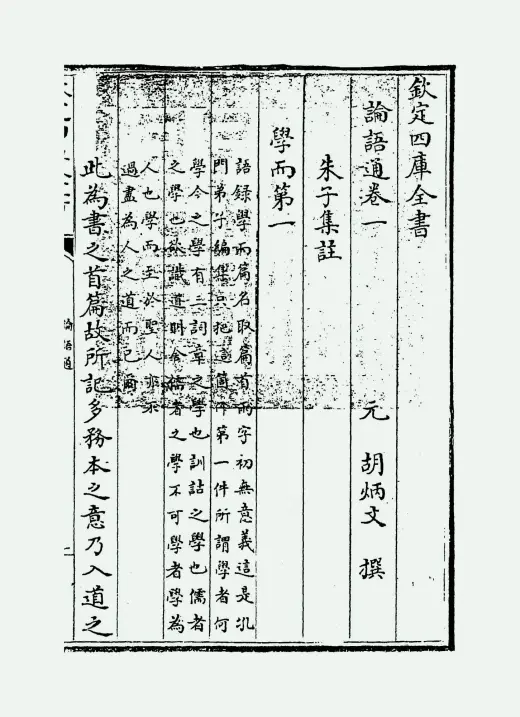 欽定四庫全書
論語通卷一
元 胡炳文 撰
朱子集註
學而第一
語録學而篇名取篇首兩字初無意義這是孔
門弟子編集只把這箇作第一件所謂學者何
學今之學有三詞章之學也訓詁之學也儒者
之學也欲識道明舍儒者之學不可學者學為
人也學而至於聖人亦不
過盡為人之道而已爾
此為書之首篇故所記多務本之意乃入道之
論語通